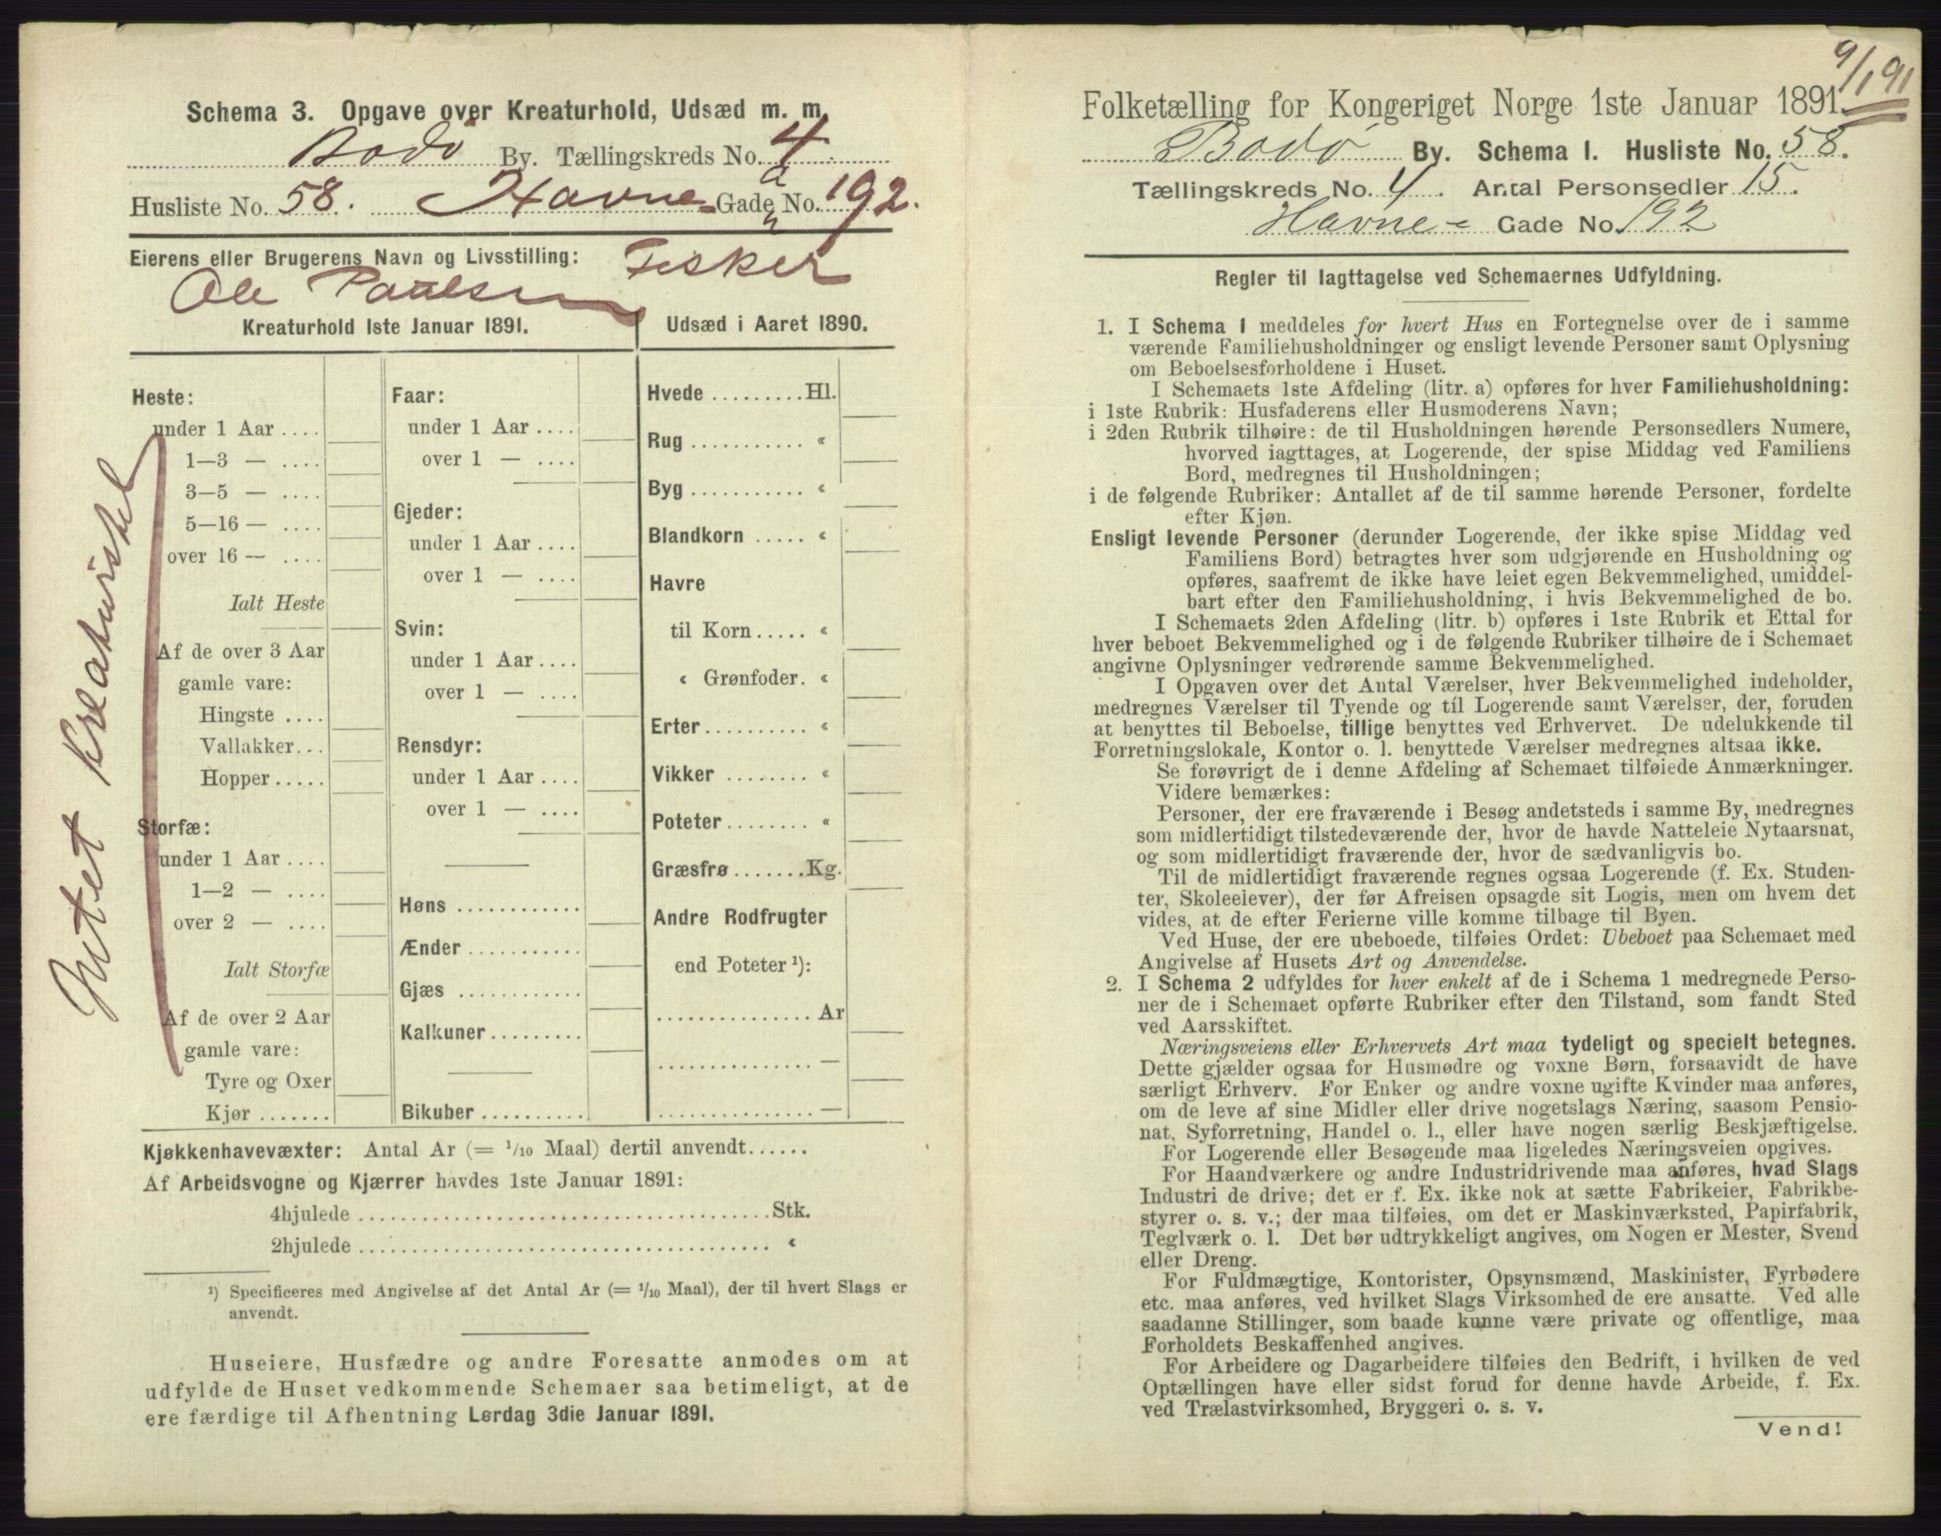 Schema 3. Opgave over Kreaturhold, Udsæd m. m.
Bodø By. Tællingskreds No. 4
Husliste No. 58. Havne- Gade No. 192.
Eierens eller Brugerens Navn og Livsstilling: Fisker
Ole Paulsen
Kreaturhold 1ste Januar 1891.
Heste:
under 1 Aar ....
1—3 — ....
3—5 — ....
5—16 — ....
over 16 — ....
Ialt Heste
Af de over 3 Aar
gamle vare:
Hingste ....
Vallakker...
Hopper .....
Storfæ:
under 1 Aar ....
1—2 — ....
over 2 — ....
Ialt Storfæ
Af de over 2 Aar
gamle vare:
Tyre og Oxer
Kjør .......
Intet
Faar:
under 1 Aar ....
over 1 — ....
Gjeder:
under 1 Aar ....
over 1 — ....
Svin:
under 1 Aar ....
over 1 — ....
Rensdyr:
under 1 Aar ....
over 1 — ....
Høns ............
Ænder ..........
Gjæs ............
Kalkuner.........
Bikuber ..........
Udsæd i Aaret 1890.
Hvede .........Hl.
Rug ........... «
Byg ........... «
Blandkorn ..... «
Havre
til Korn ..... «
« Grønfoder. «
Erter.......... «
Vikker ........ «
Poteter ........ «
Græsfrø .......Kg.
Andre Rodfrugter
end Poteter ¹):
............... Ar
............... —
............... —
Kjøkkenhavevæxter: Antal Ar (= 1/10 Maal) dertil anvendt......
Af Arbeidsvogne og Kjærrer havdes 1ste Januar 1891:
4hjulede ........................................Stk.
2hjulede ........................................ «
¹) Specificeres med Angivelse af det Antal Ar (= 1/10 Maal), der til hvert Slags er
anvendt.
Huseiere, Husfædre og andre Foresatte anmodes om at
udfylde de Huset vedkommende Schemaer saa betimeligt, at de
ere færdige til Afhentning Lørdag 3die Januar 1891.
9/1 91
Folketælling for Kongeriget Norge 1ste Januar 1891.
Bodø By. Schema 1. Husliste No. 58.
Tællingskreds No. 4. Antal Personsedler 15.
Havne- Gade No. 192
Regler til Iagttagelse ved Schemaernes Udfyldning.
1. I Schema 1 meddeles for hvert Hus en Fortegnelse over de i samme
værende Familiehusholdninger og ensligt levende Personer samt Oplysning
om Beboelsesforholdene i Huset.
I Schemaets 1ste Afdeling (litr. a) opføres for hver Familiehusholdning:
i 1ste Rubrik: Husfaderens eller Husmoderens Navn;
i 2den Rubrik tilhøire: de til Husholdningen hørende Personsedlers Numere,
hvorved iagttages, at Logerende, der spise Middag ved Familiens
Bord, medregnes til Husholdningen;
i de følgende Rubriker: Antallet af de til samme hørende Personer, fordelte
efter Kjøn.
Ensligt levende Personer (derunder Logerende, der ikke spise Middag ved
Familiens Bord) betragtes hver som udgjørende en Husholdning og
opføres, saafremt de ikke have leiet egen Bekvemmelighed, umiddel-
bart efter den Familiehusholdning, i hvis Bekvemmelighed de bo.
I Schemaets 2den Afdeling (litr. b) opføres i 1ste Rubrik et Ettal for
hver beboet Bekvemmelighed og i de følgende Rubriker tilhøire de i Schemaet
angivne Oplysninger vedrørende samme Bekvemmelighed.
I Opgaven over det Antal Værelser, hver Bekvemmelighed indeholder,
medregnes Værelser til Tyende og til Logerende samt Værelser, der, foruden
at benyttes til Beboelse, tillige benyttes ved Erhvervet. De udelukkende til
Forretningslokale, Kontor o. l. benyttede Værelser medregnes altsaa ikke.
Se forøvrigt de i denne Afdeling af Schemaet tilføiede Anmærkninger.
Videre bemærkes:
Personer, der ere fraværende i Besøg andetsteds i samme By, medregnes
som midlertidigt tilstedeværende der, hvor de havde Natteleie Nytaarsnat,
og som midlertidigt fraværende der, hvor de sædvanligvis bo.
Til de midlertidigt fraværende regnes ogsaa Logerende (f. Ex. Studen-
ter, Skoleelever), der før Afreisen opsagde sit Logis, men om hvem det
vides, at de efter Ferierne ville komme tilbage til Byen.
Ved Huse, der ere ubeboede, tilføies Ordet: Ubeboet paa Schemaet med
Angivelse af Husets Art og Anvendelse.
2. I Schema 2 udfyldes for hver enkelt af de i Schema 1 medregnede Perso-
ner de i Schemaet opførte Rubriker efter den Tilstand, som fandt Sted
ved Aarsskiftet.
Næringsveiens eller Erhvervets Art maa tydeligt og specielt betegnes.
Dette gjælder ogsaa for Husmødre og voxne Børn, forsaavidt de have
særligt Erhverv. For Enker og andre voxne ugifte Kvinder maa anføres,
om de leve af sine Midler eller drive nogetslags Næring, saasom Pensio-
nat, Syforretning, Handel o. l., eller have nogen særlig Beskjæftigelse.
For Logerende eller Besøgende maa ligeledes Næringsveien opgives.
For Haandværkere og andre Industridrivende maa anføres, hvad Slags
Industri de drive; det er f. Ex. ikke nok at sætte Fabrikeier, Fabrikbe-
styrer o. s. v.; der maa tilføies, om det er Maskinværksted, Papirfabrik,
Teglværk o. l. Det bør udtrykkeligt angives, om Nogen er Mester, Svend
eller Dreng.
For Fuldmægtige, Kontorister, Opsynsmænd, Maskinister, Fyrbødere
etc. maa anføres, ved hvilket Slags Virksomhed de ere ansatte. Ved alle
saadanne Stillinger, som baade kunne være private og offentlige, maa
Forholdets Beskaffenhed angives.
For Arbeidere og Dagarbeidere tilføies den Bedrift, i hvilken de ved
Optællingen have eller sidst forud for denne havde Arbeide, f. Ex.
ved Trælastvirksomhed, Bryggeri o. s. v.
Vend!